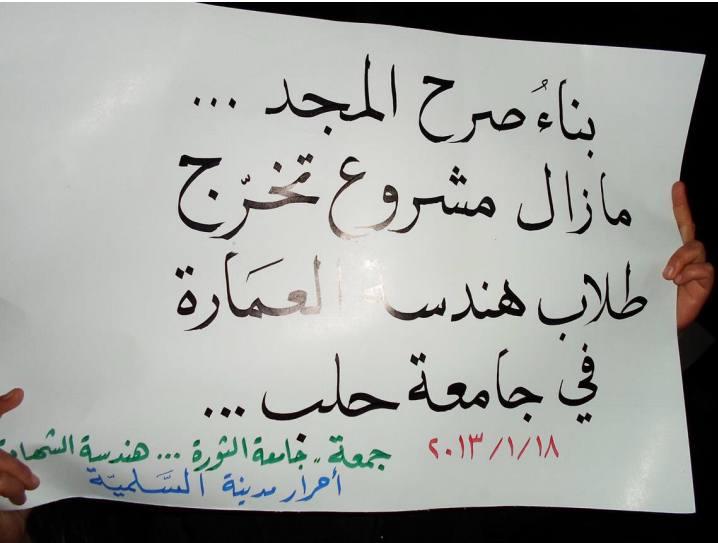 بناءُ صرح المجد ...
مازال مشروع تخرّج
طلاب هندسة العمَارة
في جامعة حلب ...
٢٠١٣/١/١٨
جمعة "جامعة الثورة ... هندسة الشهادة
أحرار مدينة السَّلميّة